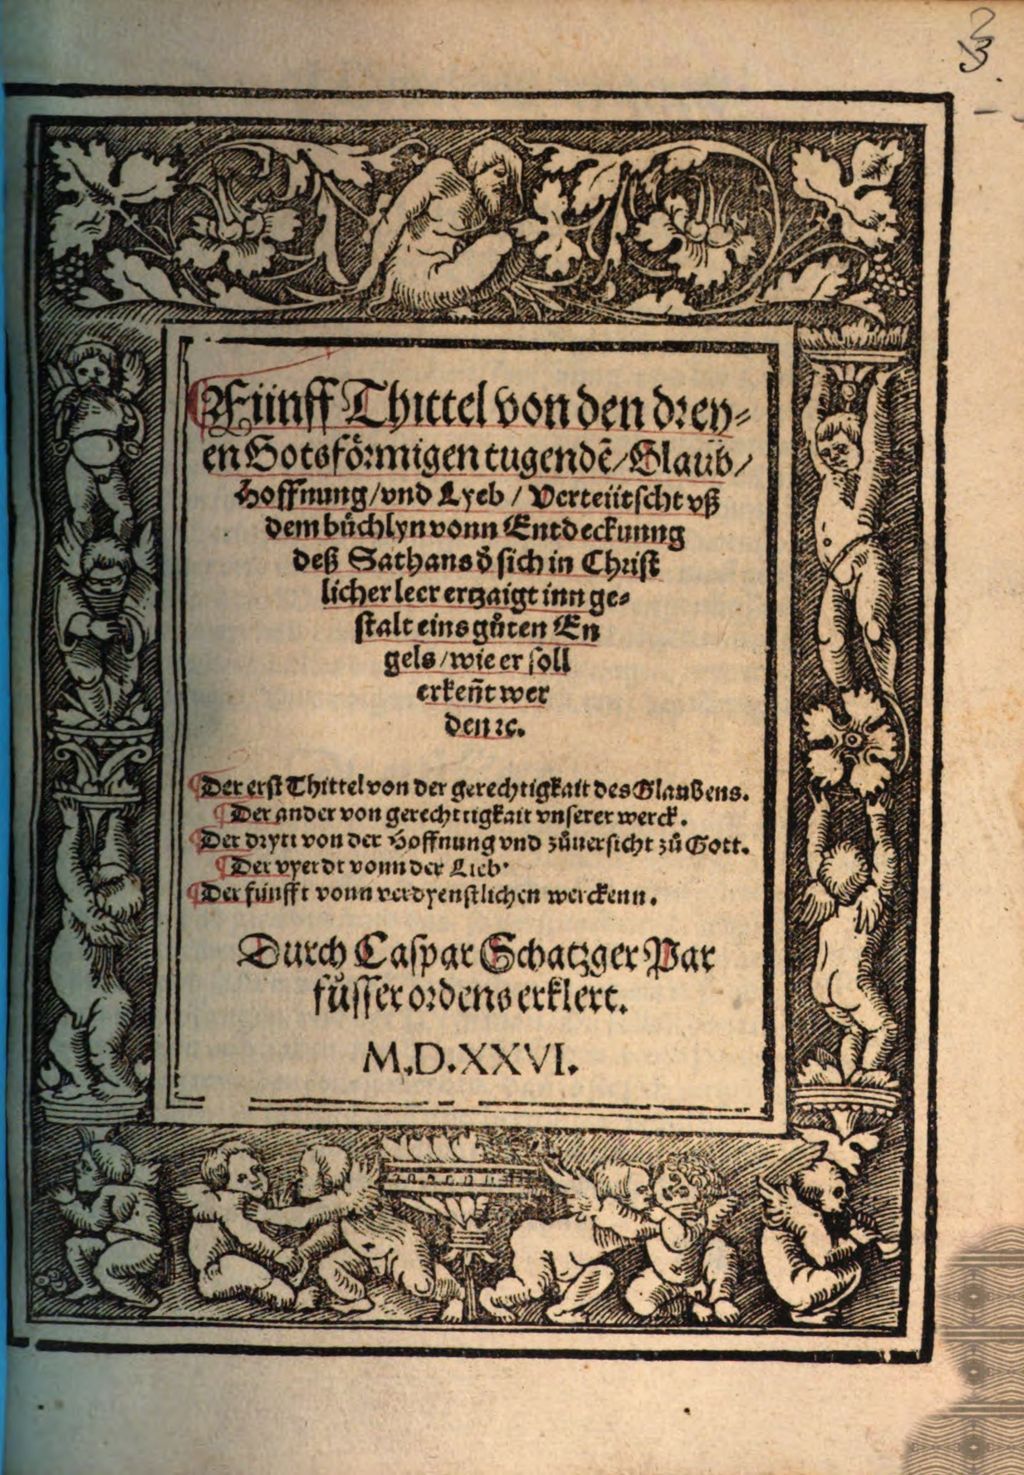 3.
Fünff Thittel von den drey⸗
en Gotsförmigen tugendē/Glaub/
Hoffnung/vnd Lyeb / Verteütscht vß
dem bůchlyn vonn Entdeckunng
deß Sathans d̕ sich in Christ
licher leer ertzaigt inn ge⸗
stalt eins gůten En
gels/wie er soll
erkeñt wer
den ꝛc.
Der erst Thittel von der gerechtigkait des Glaubens.
Der ander von gerechttigkait vnserer werck.
Der drytt von der Hoffnung vnd zůuersicht zů Gott.
Der vyerdt vonn der Lieb.
Der fünfft vonn verdyenstlichen werckenn.
Durch Caspar Schatzger Par
fůsser ordens erklert.
M.D.XXVI.